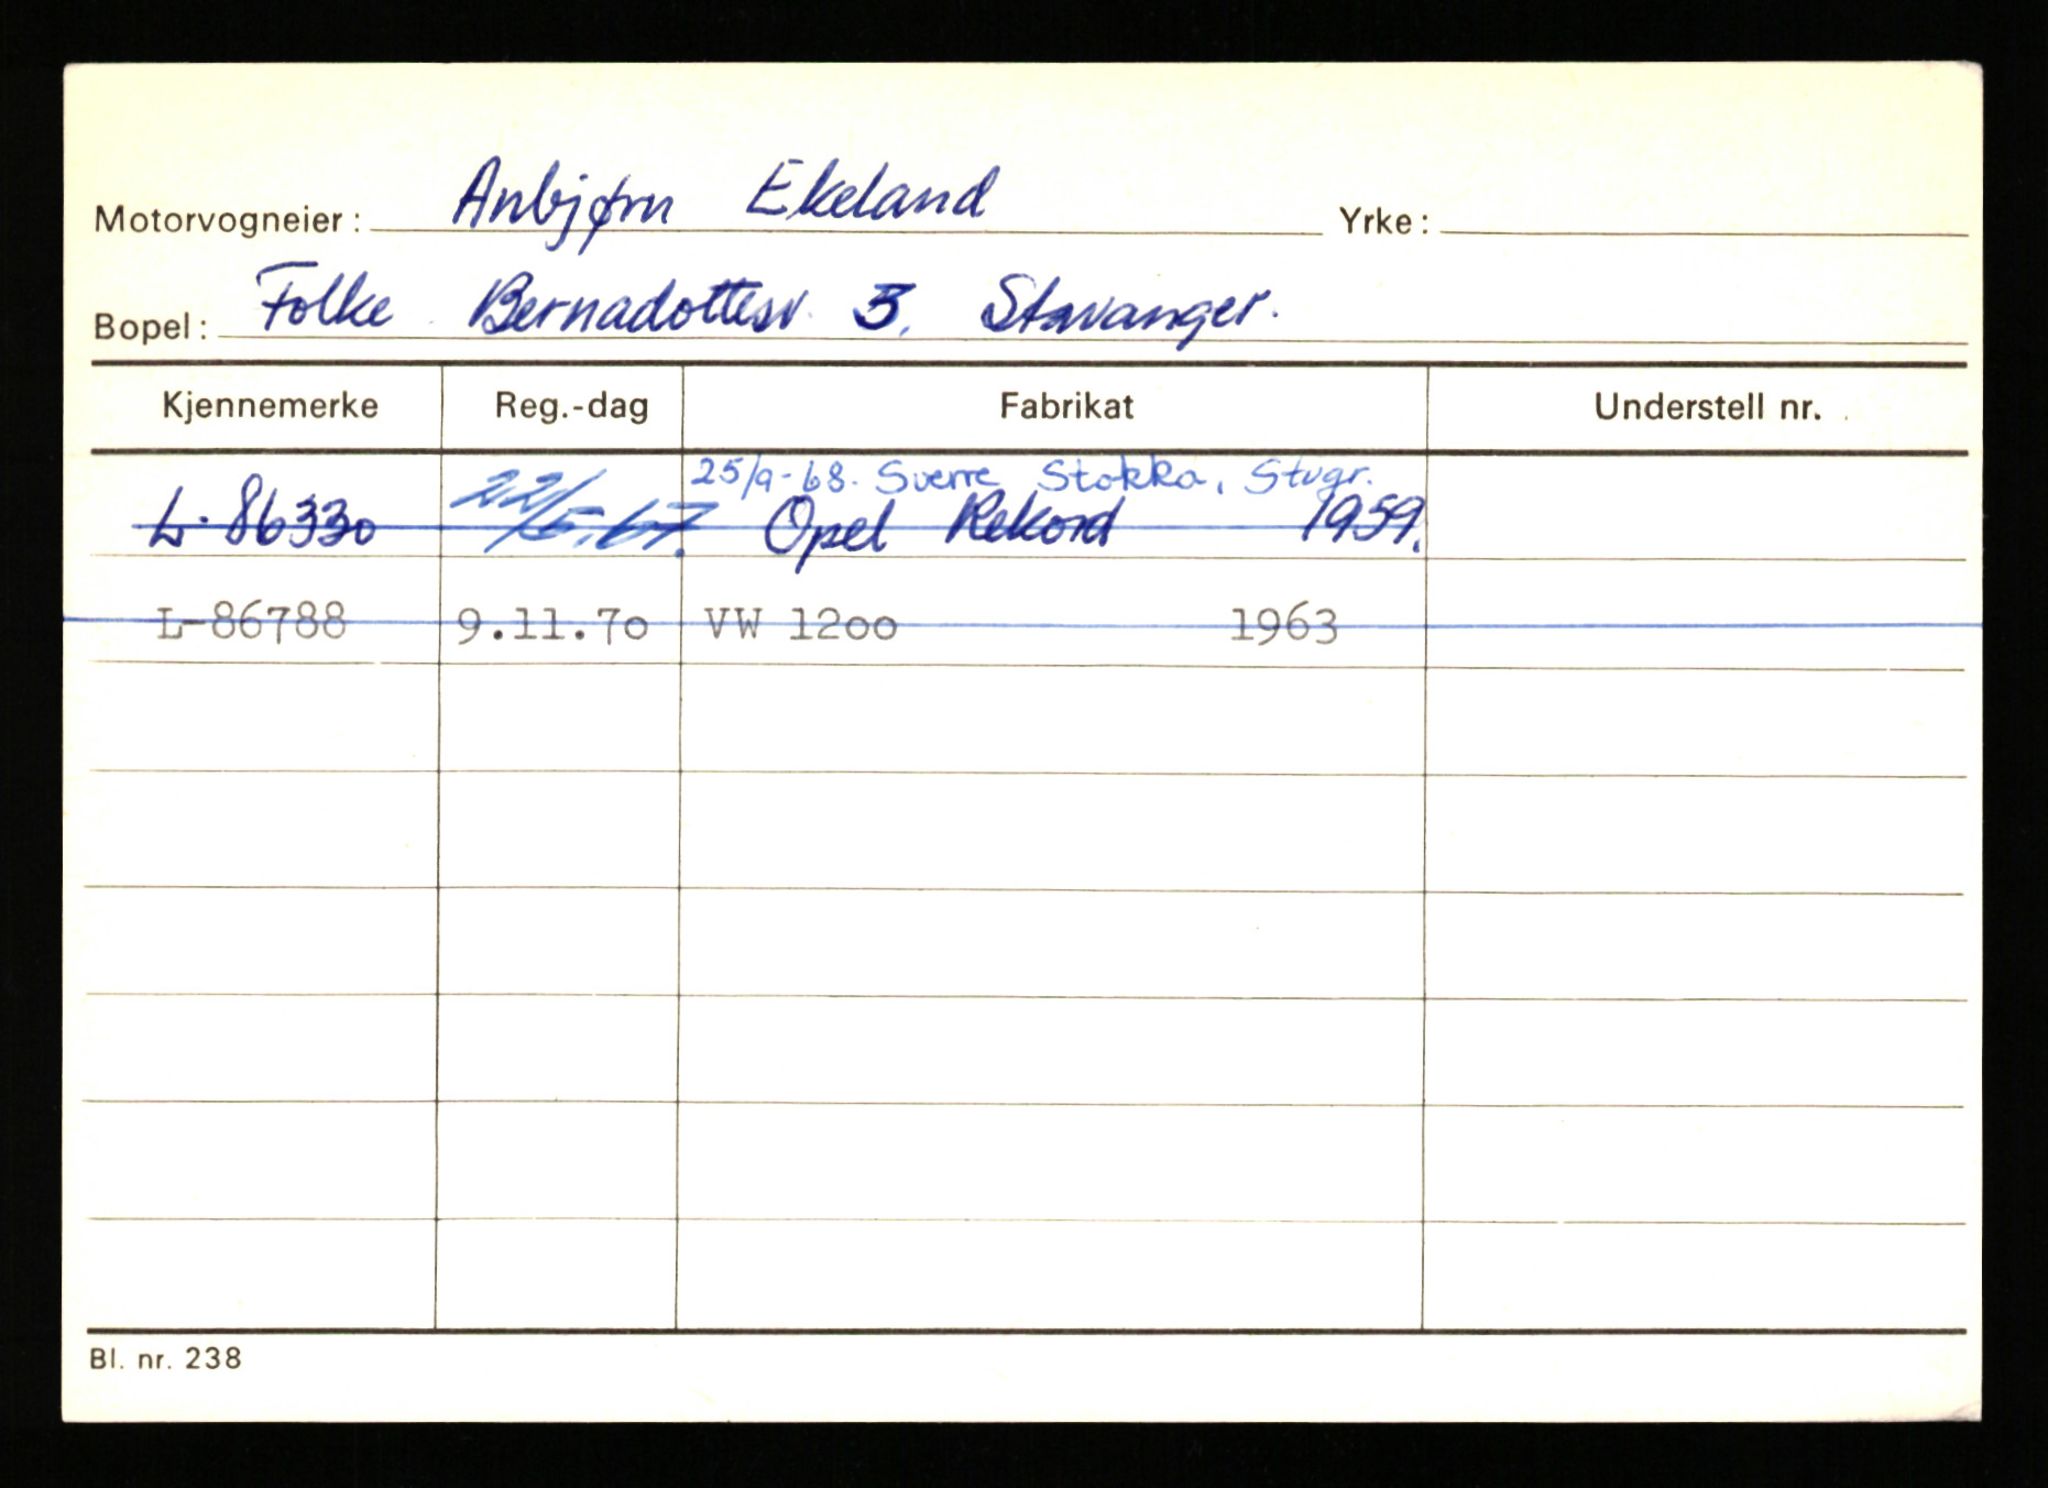 Motorvogneier: Anbjørn Ekeland Yrke:
Bopel: Folke Bernadottesv. 3. Stavanger.
Kjennemerke Reg.-dag Fabrikat Understell nr.
25/9-68. Sverre Stokka, Stvgr.
L-86330 22/5.67. Opel Rekord 1959.
L-86788 9.11.70 VW 1200 1963
Bl. nr. 238